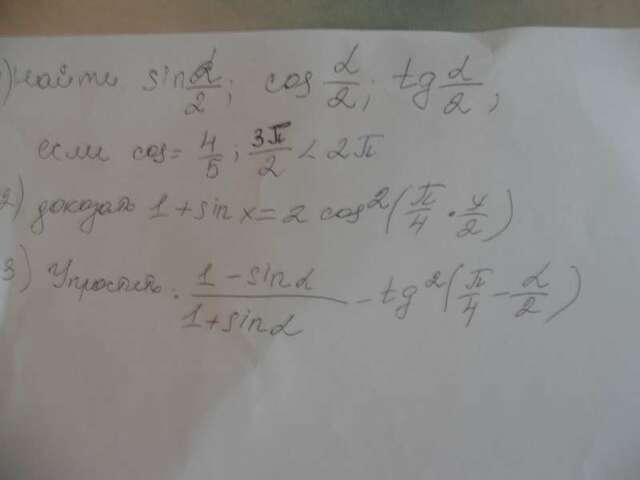 1) Найти sin α/2; cos α/2; tg α/2;
если cos = 4/5; 3π/2 < 2π
2) доказать 1 + sin x = 2 cos²(π/4 · x/2)
3) Упростить. 1 - sin α / 1 + sin α - tg²(π/4 - α/2)